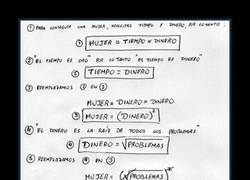 ① PARA CONSEGUIR UNA MUJER, NECESITAS TIEMPO Y DINERO, POR LO TANTO:
① MUJER = TIEMPO x DINERO
② "EL TIEMPO ES ORO" POR LO TANTO "EL TIEMPO ES DINERO"
② TIEMPO = DINERO
③ REEMPLAZAMOS ② EN ①
MUJER = DINERO x DINERO
③ MUJER = (DINERO)²
④ "EL DINERO ES LA RAÍZ DE TODOS LOS PROBLEMAS"
④ DINERO = √PROBLEMAS
⑤ REEMPLAZAMOS ④ EN ③
MUJER = (√PROBLEMAS)²